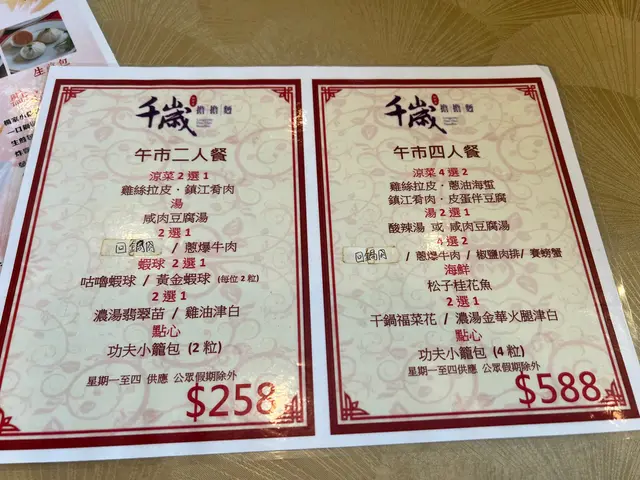 生煎包
千歲
擔擔麵
午市二人餐
涼菜 2 選 1
雞絲拉皮 · 鎮江肴肉
湯
咸肉豆腐湯
2 選 1
回鍋肉 / 蔥爆牛肉
蝦球 2 選 1
咕嚕蝦球 / 黃金蝦球 (每位 2 粒)
2 選 1
濃湯翡翠苗 / 雞油津白
點心
功夫小籠包 (2 粒)
星期一至四 供應 公眾假期除外
$258
千歲
擔擔麵
午市四人餐
涼菜 4 選 2
雞絲拉皮 · 蔥油海蜇
鎮江肴肉 · 皮蛋伴豆腐
湯 2 選 1
酸辣湯 或 咸肉豆腐湯
4 選 2
回鍋肉 / 蔥爆牛肉 / 椒鹽肉排/ 賽螃蟹
海鮮
松子桂花魚
2 選 1
干鍋福菜花 / 濃湯金華火腿津白
點心
功夫小籠包 (4 粒)
星期一至四 供應 公眾假期除外
$588